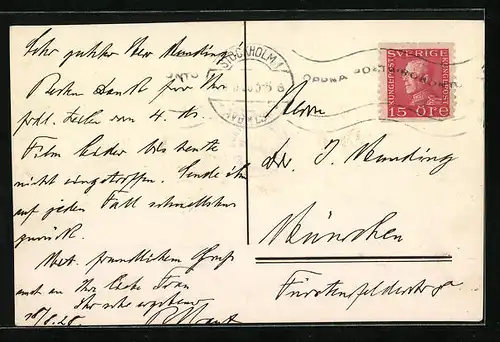 Sehr geehrter Herr Kunding!
Besten Dank für Ihre
frdl. Zeilen vom 4. ds.
Film leider bis heute
nicht eingetroffen. Sende ihn
auf jeden Fall schnellstens
zurück.
Mit freundlichem Gruß
auch an Ihre liebe Frau
Ihr sehr ergebener
18/8.28.
STOCKHOLM 1
SVERIGE
15 ÖRE
Herrn
Dr. J. Kunding
München